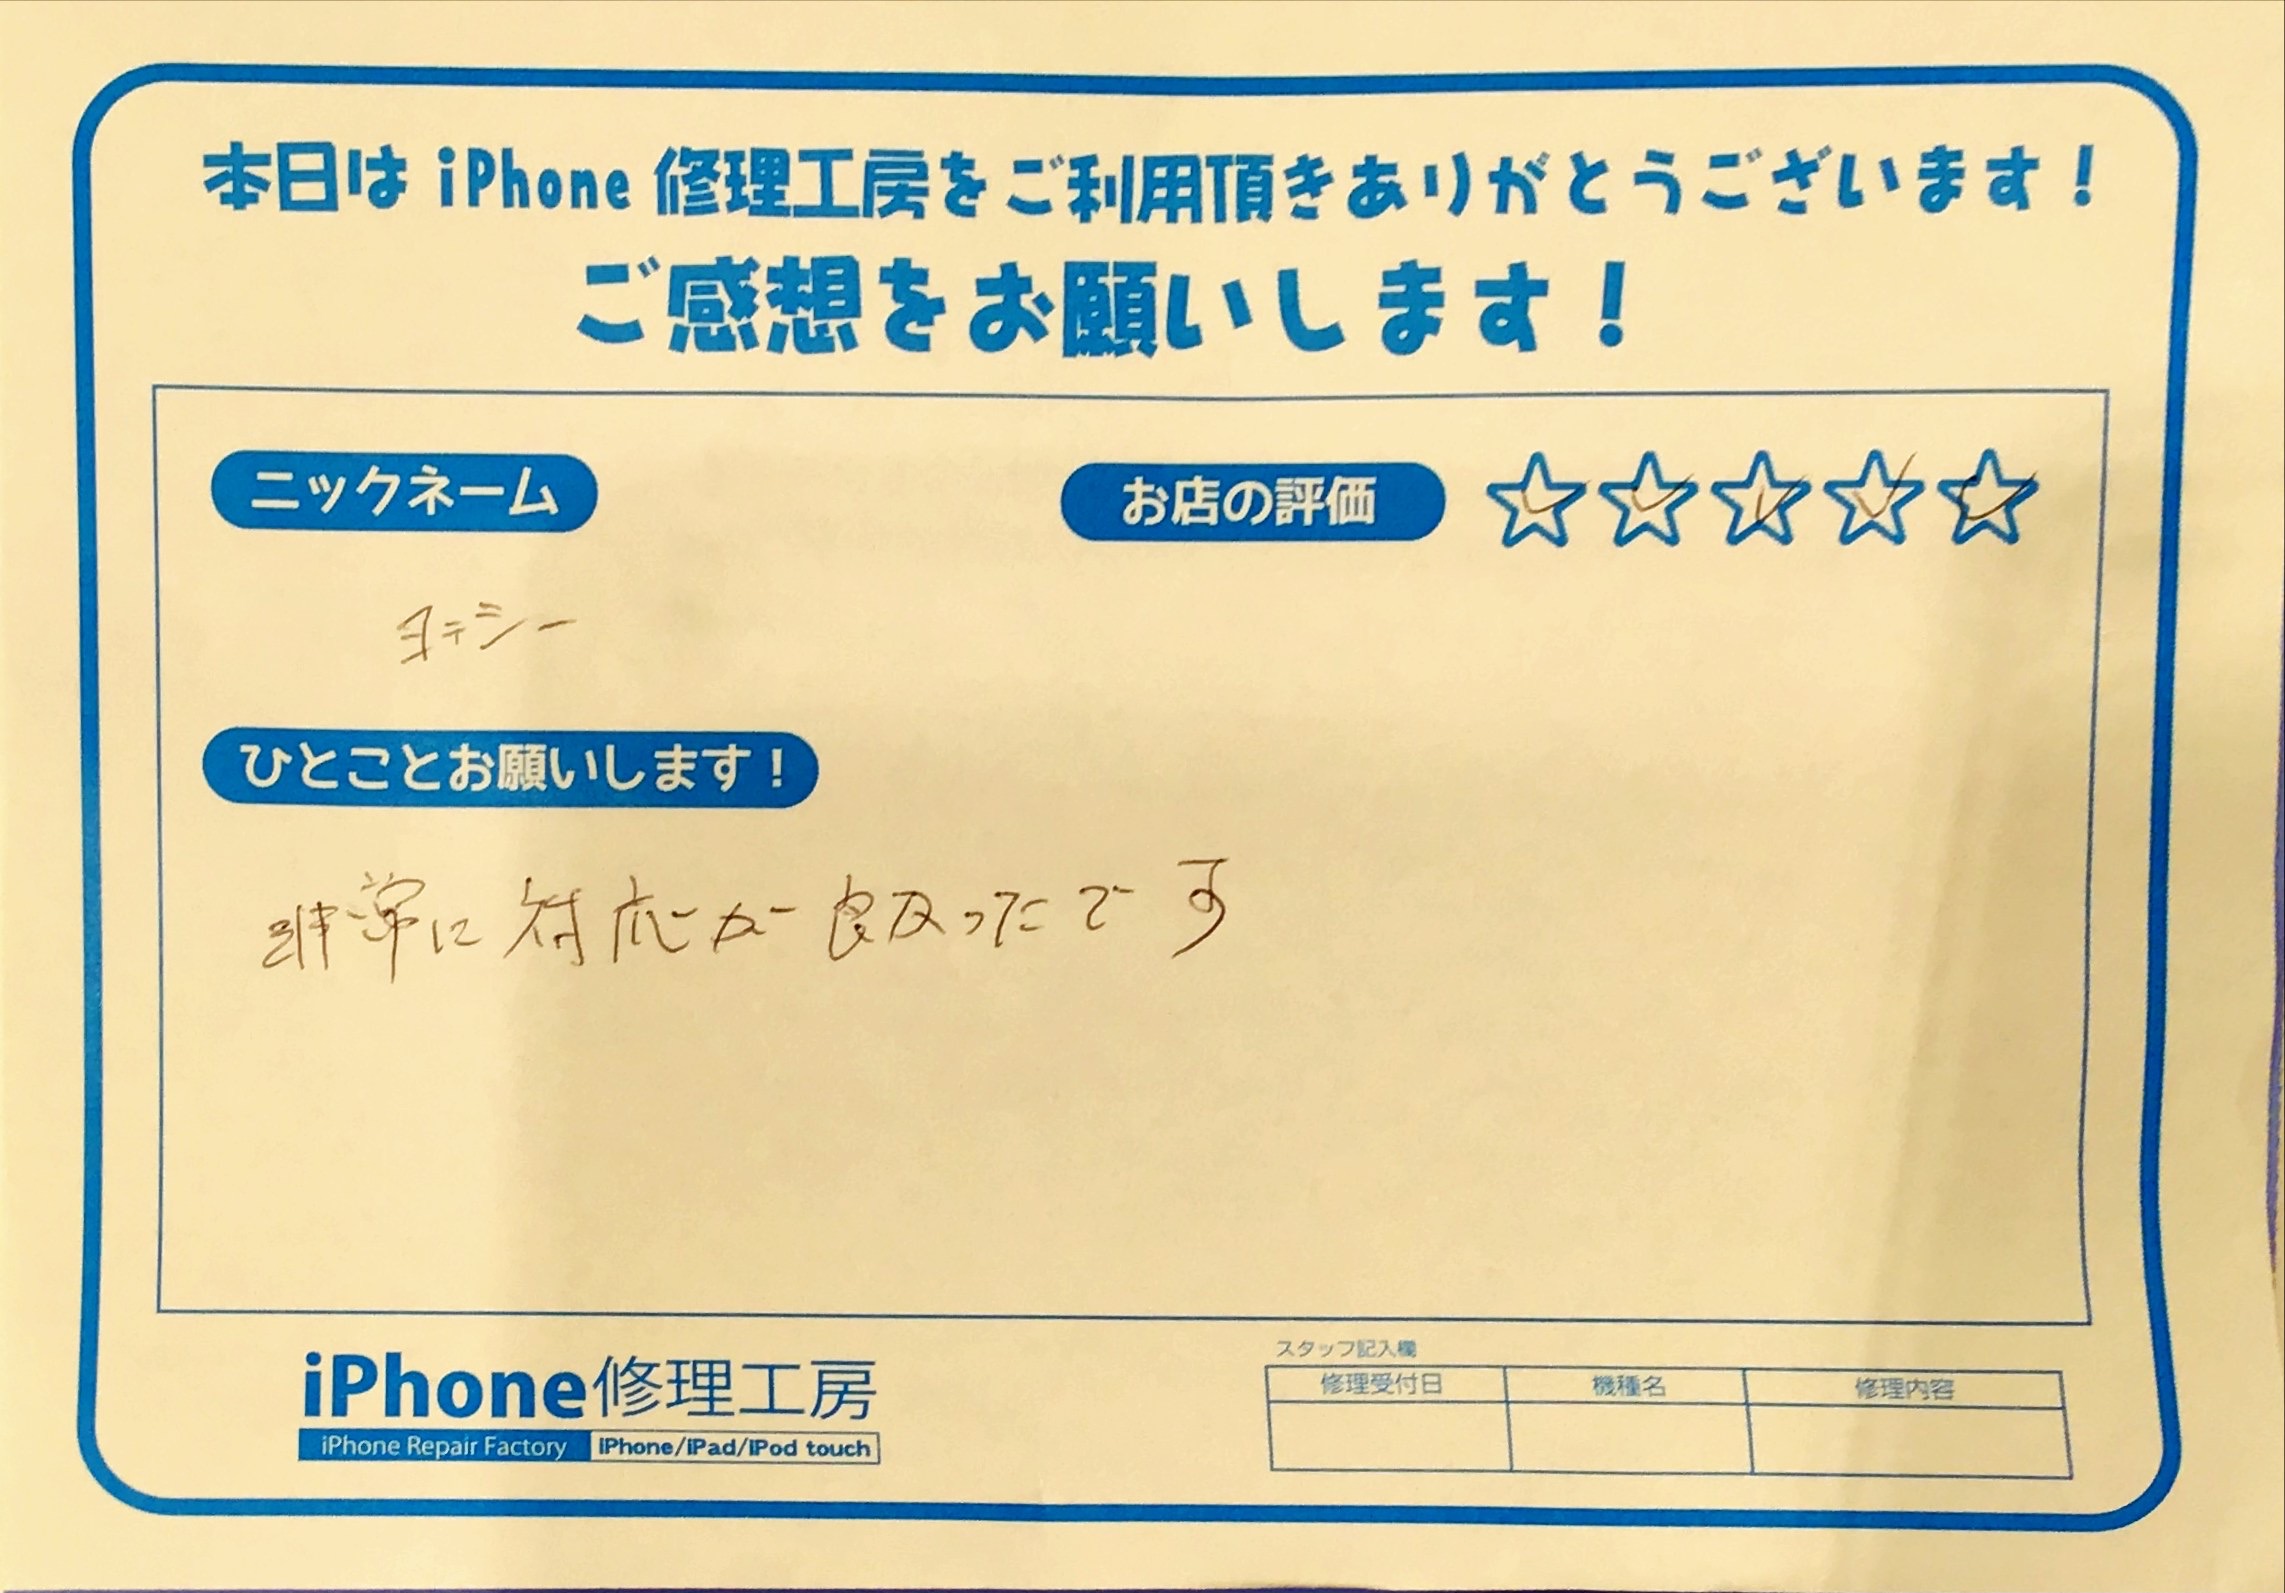 本日は iPhone 修理工房をご利用頂きありがとうございます！
ご感想をお願いします！
ニックネーム
お店の評価
ヨテシー
ひとことお願いします！
非常に対応が良かったです
iPhone修理工房
iPhone Repair Factory
iPhone/iPad/iPod touch
スタッフ記入欄
修理受付日
機種名
修理内容